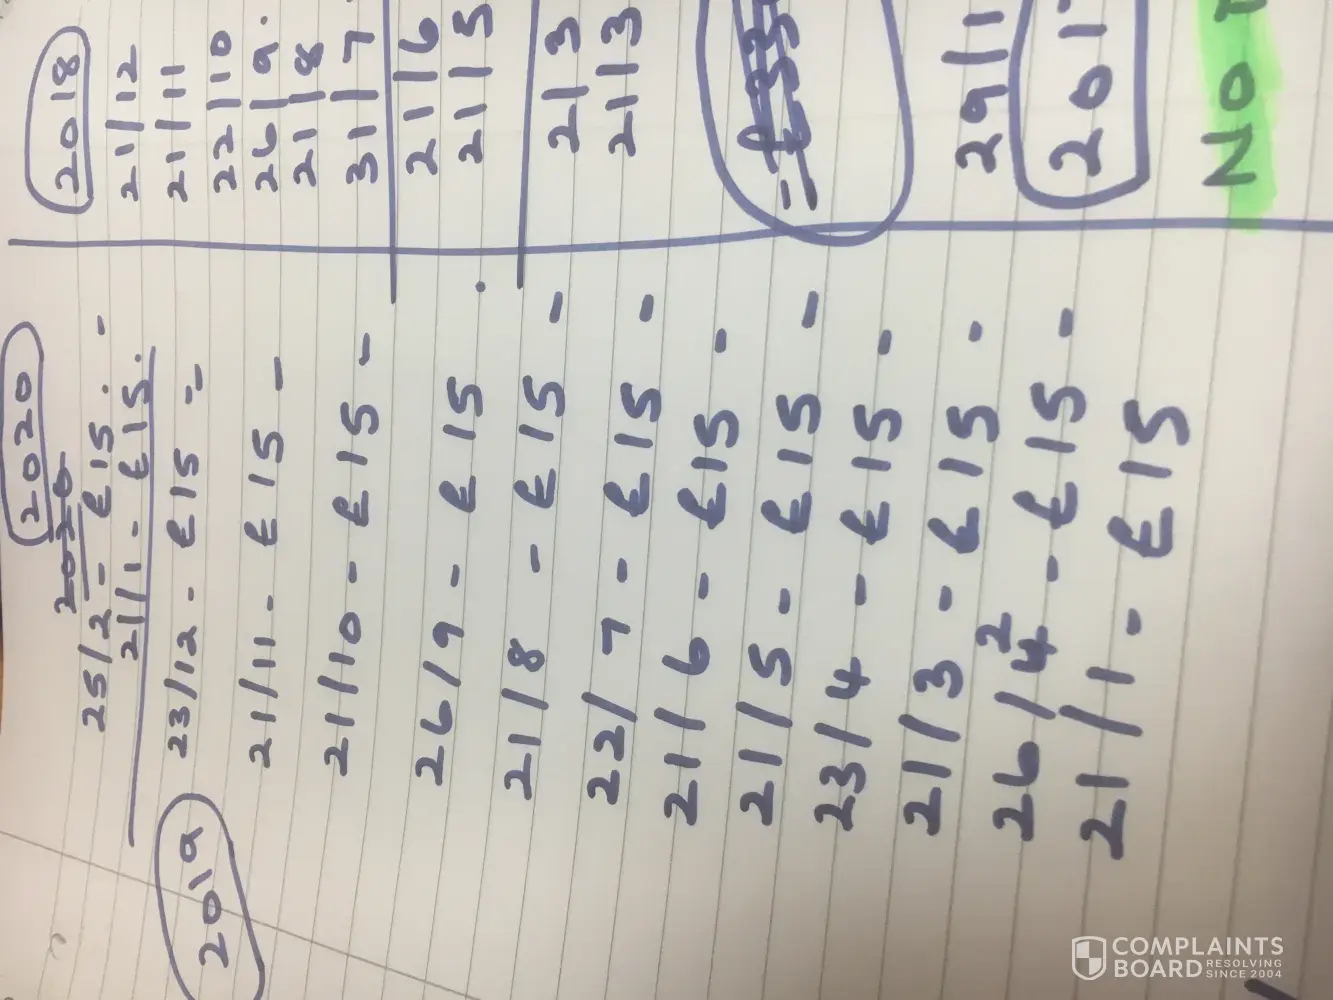 2020
2020
25/2 - £15. -
21/1 - £15.
2019
23/12 - £15 -
21/11 - £15 -
21/10 - £15 -
26/9 - £15
21/8 - £15 -
22/7 - £15 -
21/6 - £15 -
21/5 - £15 -
23/4 - £15 -
21/3 - £15 -
26/4 2 - £15 -
21/1 - £15
2018
21/12
21/11
22/10
26/9.
21/8
31/7
21/6
21/5
21/3
29/11
No
COMPLAINTS
BOARD RESOLVING
SINCE 2004